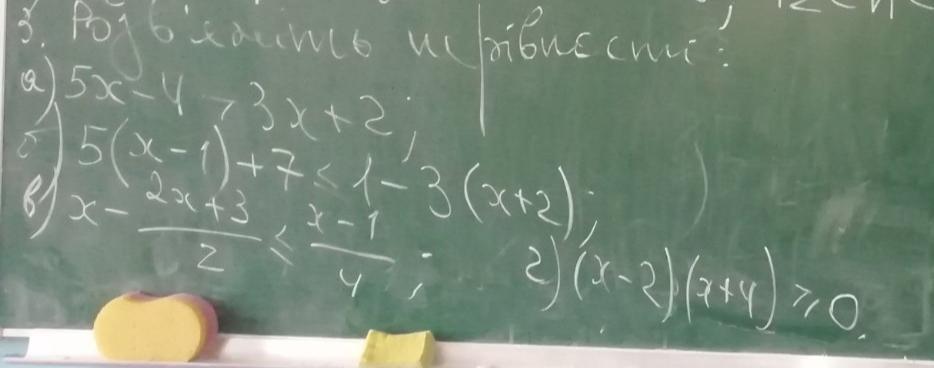 3. Розв'яжіть нерівності:
а) 5x-4 > 3x+2;
б) 5(x-1)+7 ≤ 1-3(x+2);
в) x - (2x+3)/2 ≤ (x-1)/4;
г) (x-2)(x+4) ≥ 0.